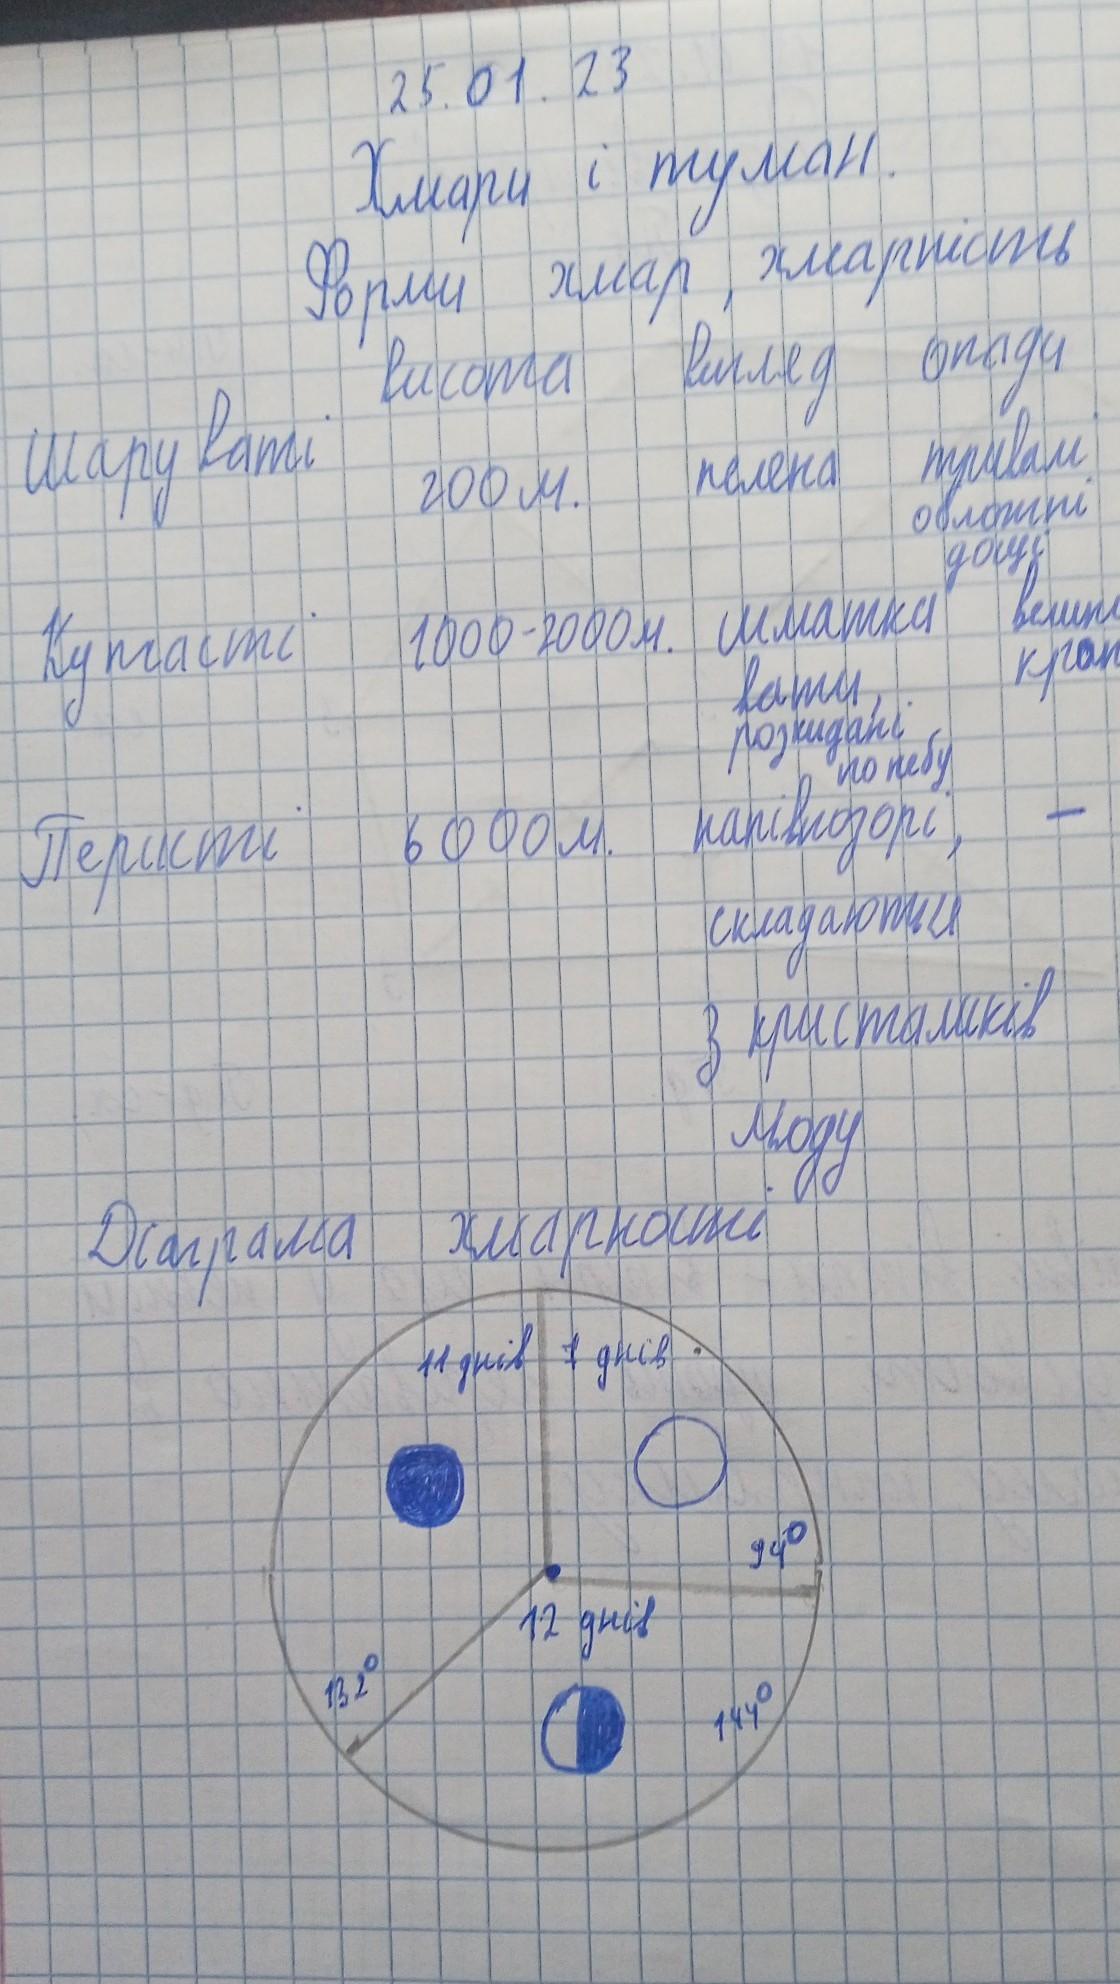 25.01.23
Хмари і туман.
Форми хмар, хмарність
висота вигляд опади
Шаруваті 200м. пелена тривалі
обложні
дощі
Купчасті 1000-2000м. шматки
вати, крап
розкидані
по небу
Перисті 6000м. напівпозорі, —
складаються
з кристаликів
льоду
Діаграма хмарності
11 днів 7 днів
94°
12 днів
132°
144°